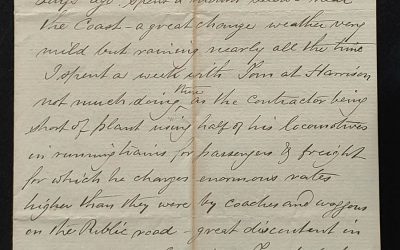 days ago spent a
the Coast - a great change weather very
mild but raining nearly all the time
I spent a week with Tom at Harrison
not much doing there as the Contractor being
short of plant using half of his locomotives
in running trains for passengers & freight
for which he charges enormous rates
higher than they were by coaches and waggons
on the Public road - great discontent in